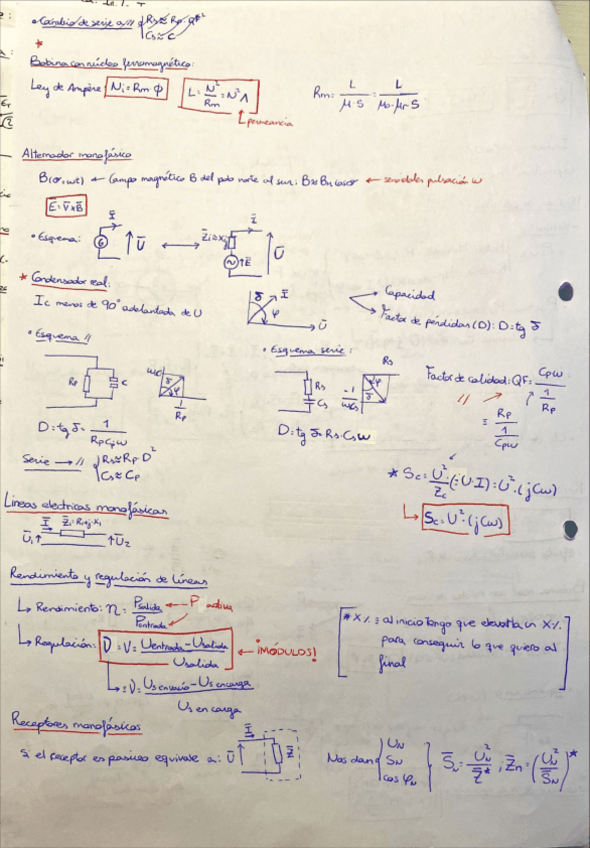 • Cambio de serie a // { Rs ≈ Rp · Q²
Cs ≈ C
*
Bobina con núcleo ferromagnético:
Ley de Ampère: Ni = Rm · ϕ
L = N²/Rm = N² Λ
Permeancia
Rm = L/(μ · S) = L/(μ₀ · μr · S)
Alternador monofásico
← Campo magnético B del polo norte al sur:
← senoidales pulsación ω
E̅ = V̅ x B̅
• Esquema:
G
I̅
U̅
I̅
E̅
U̅
* Condensador real:
Ic menos de 90° adelantada de U
δ
I̅
φ
U̅
Capacidad
Factor de pérdidas (D): D = tg δ
• Esquema //
Rp
c
ωC
δ
φ
1/Rp
D = tg δ = 1/(Rp Cp ω)
Serie → // { Rs ≈ Rp · D²
Cs ≈ Cp
• Esquema serie:
Rs
Cs
Rs
-1/ωCs
δ
φ
D = tg δ = Rs · Cs ω
Factor de calidad: QF = Cp ω/(1/Rp)
//
= Rp/(1/Cp ω)
* Sc = U²/Zc (= U · I) = U² · (jCω)
Sc = U² · (jCω)
Líneas electricas monofásicas
I̅
U̅₁
U̅₂
Rendimiento y regulación de líneas
Rendimiento: η = Psalida/Pentrada ← P activa
Regulación: = V = (Uentrada - Usalida)/Usalida ← ¡MÓDULOS!
= V = (Us en vacío - Us en carga)/Us en carga
* X% = al inicio tengo que elevarla un X%
para conseguir lo que quiero al
final
Receptores monofásicos
Si el receptor es pasivo equivale a: U̅
I̅
Z̅
Nos dan { UN
SN
cos φN
S̅N = UN²/Z̅* ; Z̅n = (UN²/S̅N)*